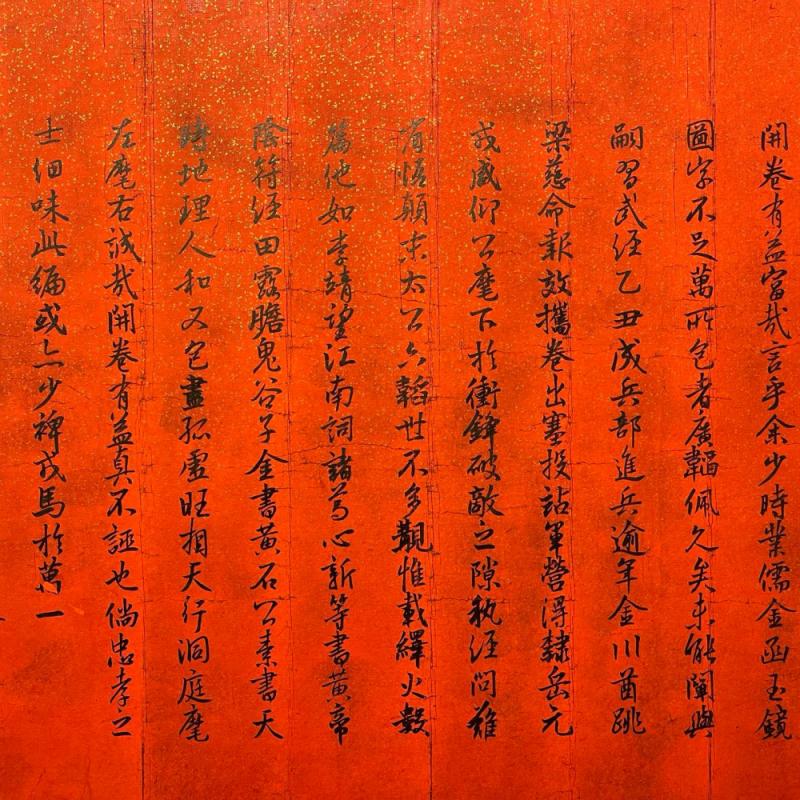 開卷有益富哉言乎余少時業儒金函玉鏡
圖字不足萬所包者廣韜佩久矣未能闡與
嗣習武經乙丑成兵部進兵逾年金川酋跳
梁慈命報效攜卷出塞投詀軍營得隸岳元
戎威仰公麾下於衝鋒破敵之隙執經問難
有悟顛末太公六韜世不多覯惟載繹火數
篇他如李靖望江南詞諸葛心新等書黃帝
陰符經田露膽鬼谷子金書黃石公素書天
時地理人和又包盡孤虛旺相天行洞庭麾
左麾右誠哉開卷有益真不誣也倘忠孝之
士細味此編或亦少裨戎馬於萬一